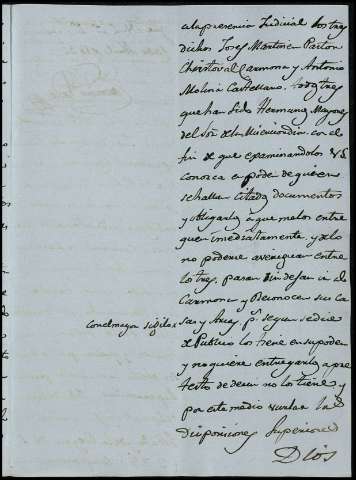 ala presencia Judicial los tres
dichos Josef Martinez Pastor
Christoval Carmona y Antonio
Molina Castellano, todos tres
que han sido Hermanos Mayores
del Sor. de la Misericordia con el
fin de que examinandolos VS.
conosca en poder de quien
se hallan citados documentos
y obligarlos a que melos entre
guen imediatamente, y no
poderse averiguar entre
los tres, pasar sin dejar ir de
Carmona y Reconocer su Ca
con el mayor sigilo
sas y Arcas ps. segun se dice
de Publico los tiene en su poder
y no quiere entregarlos a pre
testo de decir no los tiene y
por este medio burlar las
disposiciones Superiores
Dios